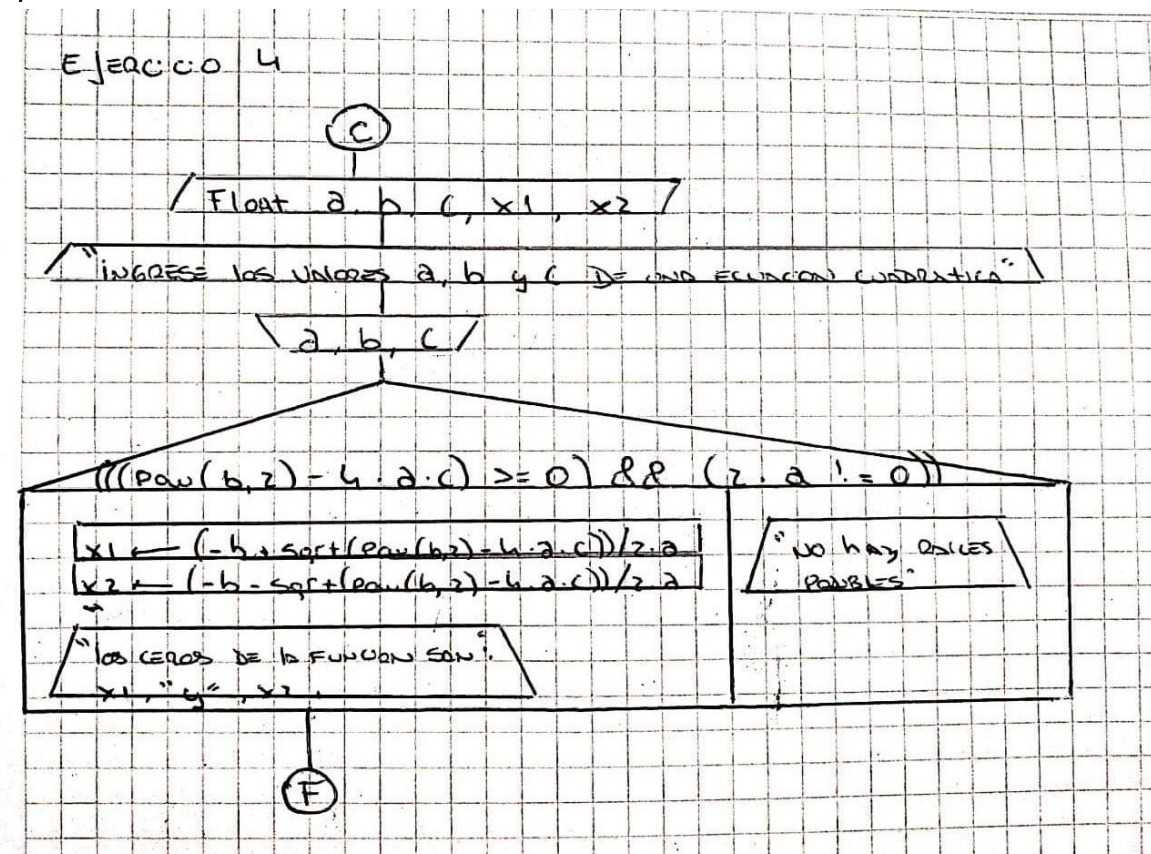 EJERCICIO 4
C
Float a, b, c, x1, x2
"INGRESE los VALORES a, b y c DE UNA ECUACION CUADRATICA"
a, b, c
(((pow(b,2) - 4 . a . c) >= 0) && (2 . a != 0))
x1 ← (-b + sqrt(pow(b,2) - 4 . a . c))/2 . a
x2 ← (-b - sqrt(pow(b,2) - 4 . a . c))/2 . a
"los CEROS DE la FUNCION SON".
x1, "y", x2
"NO hay RAICES
POSIBLES"
F